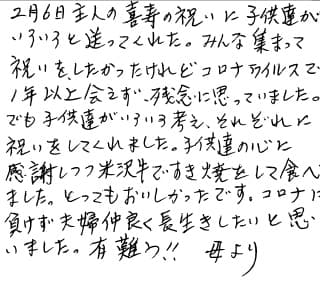 2月6日主人の喜寿の祝いに子供達が
いろいろと送ってくれた。みんな集まって
祝いをしたかったけれどコロナウイルスで
1年以上会えず、残念に思っていました。
でも子供達がいろいろ考え、それぞれに
祝いをしてくれました。子供達の心に
感謝しつつ米沢牛ですき焼をして食べ
ました。とってもおいしかったです。コロナに
負けず夫婦仲良く長生きしたいと思
いました。有難う!! 母より